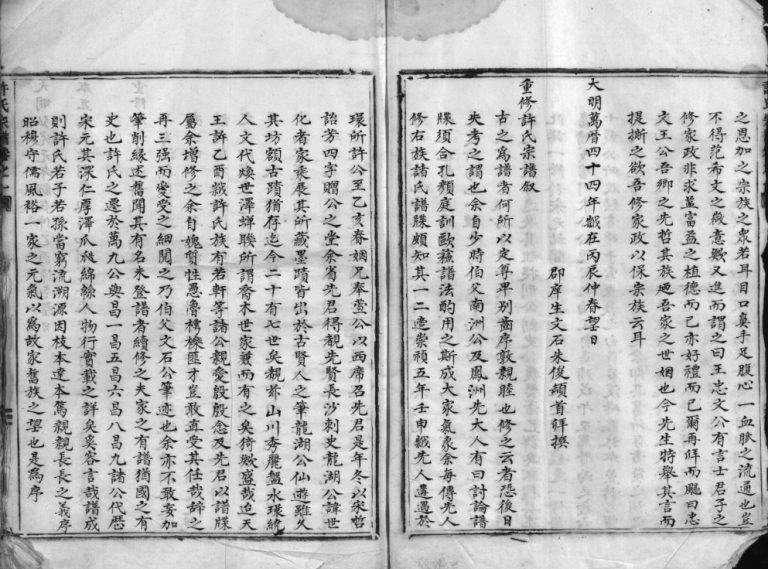 之恩加之崇族之眾若耳目口鼻手足腹心一血脈之流通也豈
不得范希文之微意歟又進而謂之曰王忠文公有言士君子之
修家政非求益富益之植德而已亦好禮而已爾再拜而颺曰忠
文王公吾鄉之先哲其族廼吾家之世姻也今先生特舉其言而
提撕之欲吾修家政以保崇族云耳
大明萬曆四十四年歲在丙辰仲春望日
郡庠生文石朱俊頓首拜撰
重修許氏宗譜敘
古之為譜者何所以定尊卑別齒序敦親睦也修之云者恐後日
失考之謂也余自少時伯父南洲公及鳳洲先大人有曰討論譜
牒須合孔顏庭訓歐蘇譜法酌用之斯成大家氣象余每傳先人
修右族諸氏譜牒頗知其一二迨崇禎五年壬申歲先人遭遇於
環所許公至乙亥春姻兄奉萱公以西席召先君是年冬以眾哲
詒芳四字贈公之堂余省先君得覩先賢長沙刺史龍湖公諱世
化者家乘展其所藏墨蹟皆出於古賢人之筆龍湖公仙遊雖久
其坊額古蹟猶存迄今二十有七世矣觀於山川秀麗盤水環繞
人文代煥世澤蟬聯所謂喬木世家兼而有之矣猗歟盛哉迨天
王許乙酉歲許氏族有若軒等諸公親愛殷殷念及先君以譜牒
屬余增修之余自媿質性愚魯樗櫟匪才豈敢直受其任哉辭之
再三強而後受之細閱之乃伯父文石公筆迹也余亦不敢妄加
筆削緣述舊聞其有名未登譜者續修之夫家之有譜猶國之有
史也許氏之遷於萬九公與昌一昌五昌六昌八昌九諸公代歷
宋元其深仁厚澤瓜瓞綿綿人物行實載之詳矣奚容言哉譜成
則許氏若子若孫當窮流溯源因枝本達本篤親親長長之義序
昭穆守儒風裕一家之元氣以為故家舊族之望也是為序